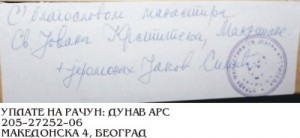 С благословом манастира
Св. Јована Крститеља,
+ јеромонах Јаков
УПЛАТЕ НА РАЧУН: ДУНАВ АРС
205-27252-06
МАКЕДОНСКА 4, БЕОГРАД